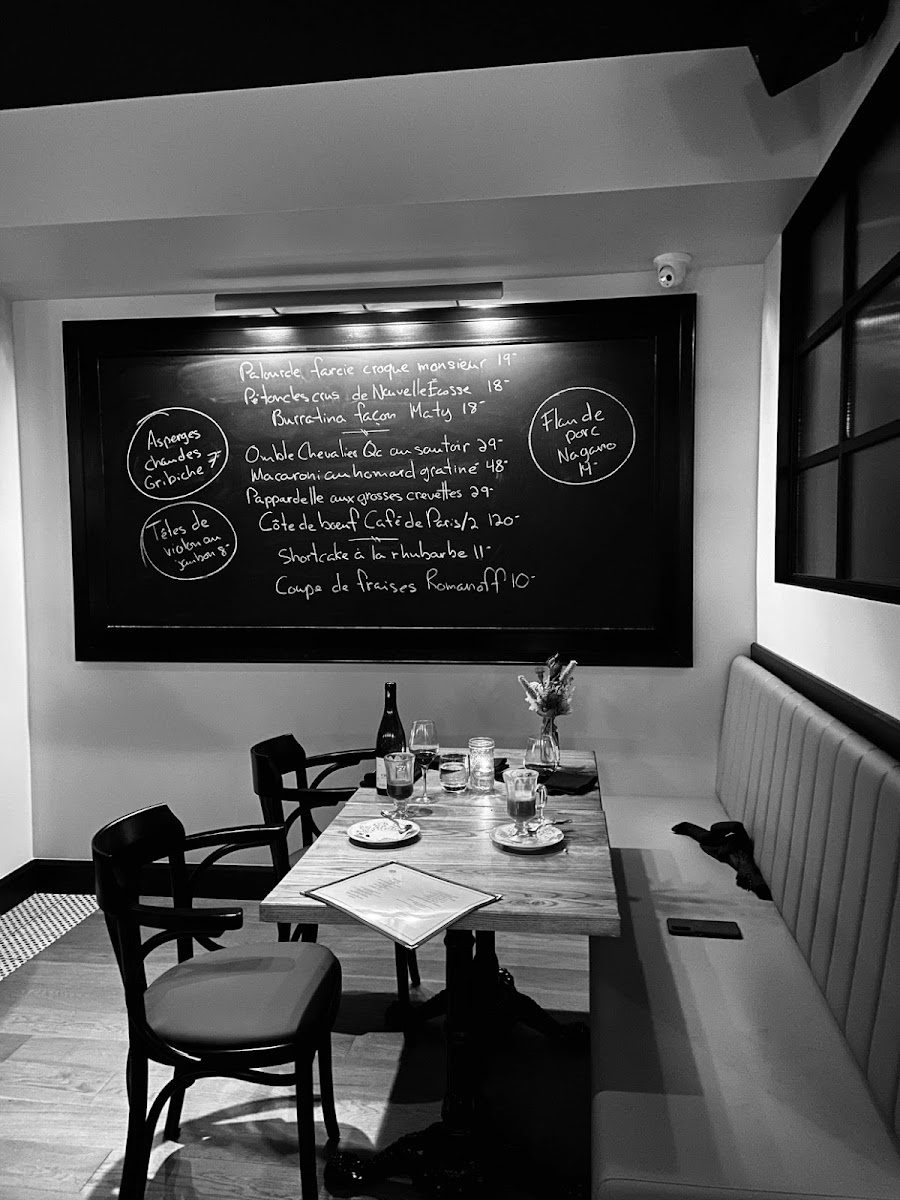 Palourde farcie croque monsieur 19-
Pétoncles crus de Nouvelle Écosse 18-
Burratina façon Maty 18-
Omble Chevalier Qc au sautoir 29-
Macaroni au homard gratiné 48-
Pappardelle aux grosses crevettes 29-
Côte de bœuf Café de Paris/2 120-
Shortcake à la rhubarbe 11-
Coupe de fraises Romanoff 10-
Asperges
chaudes
Gribiche 7
Têtes de
violon au
jambon 8-
Flan de
porc
Nagano
14-